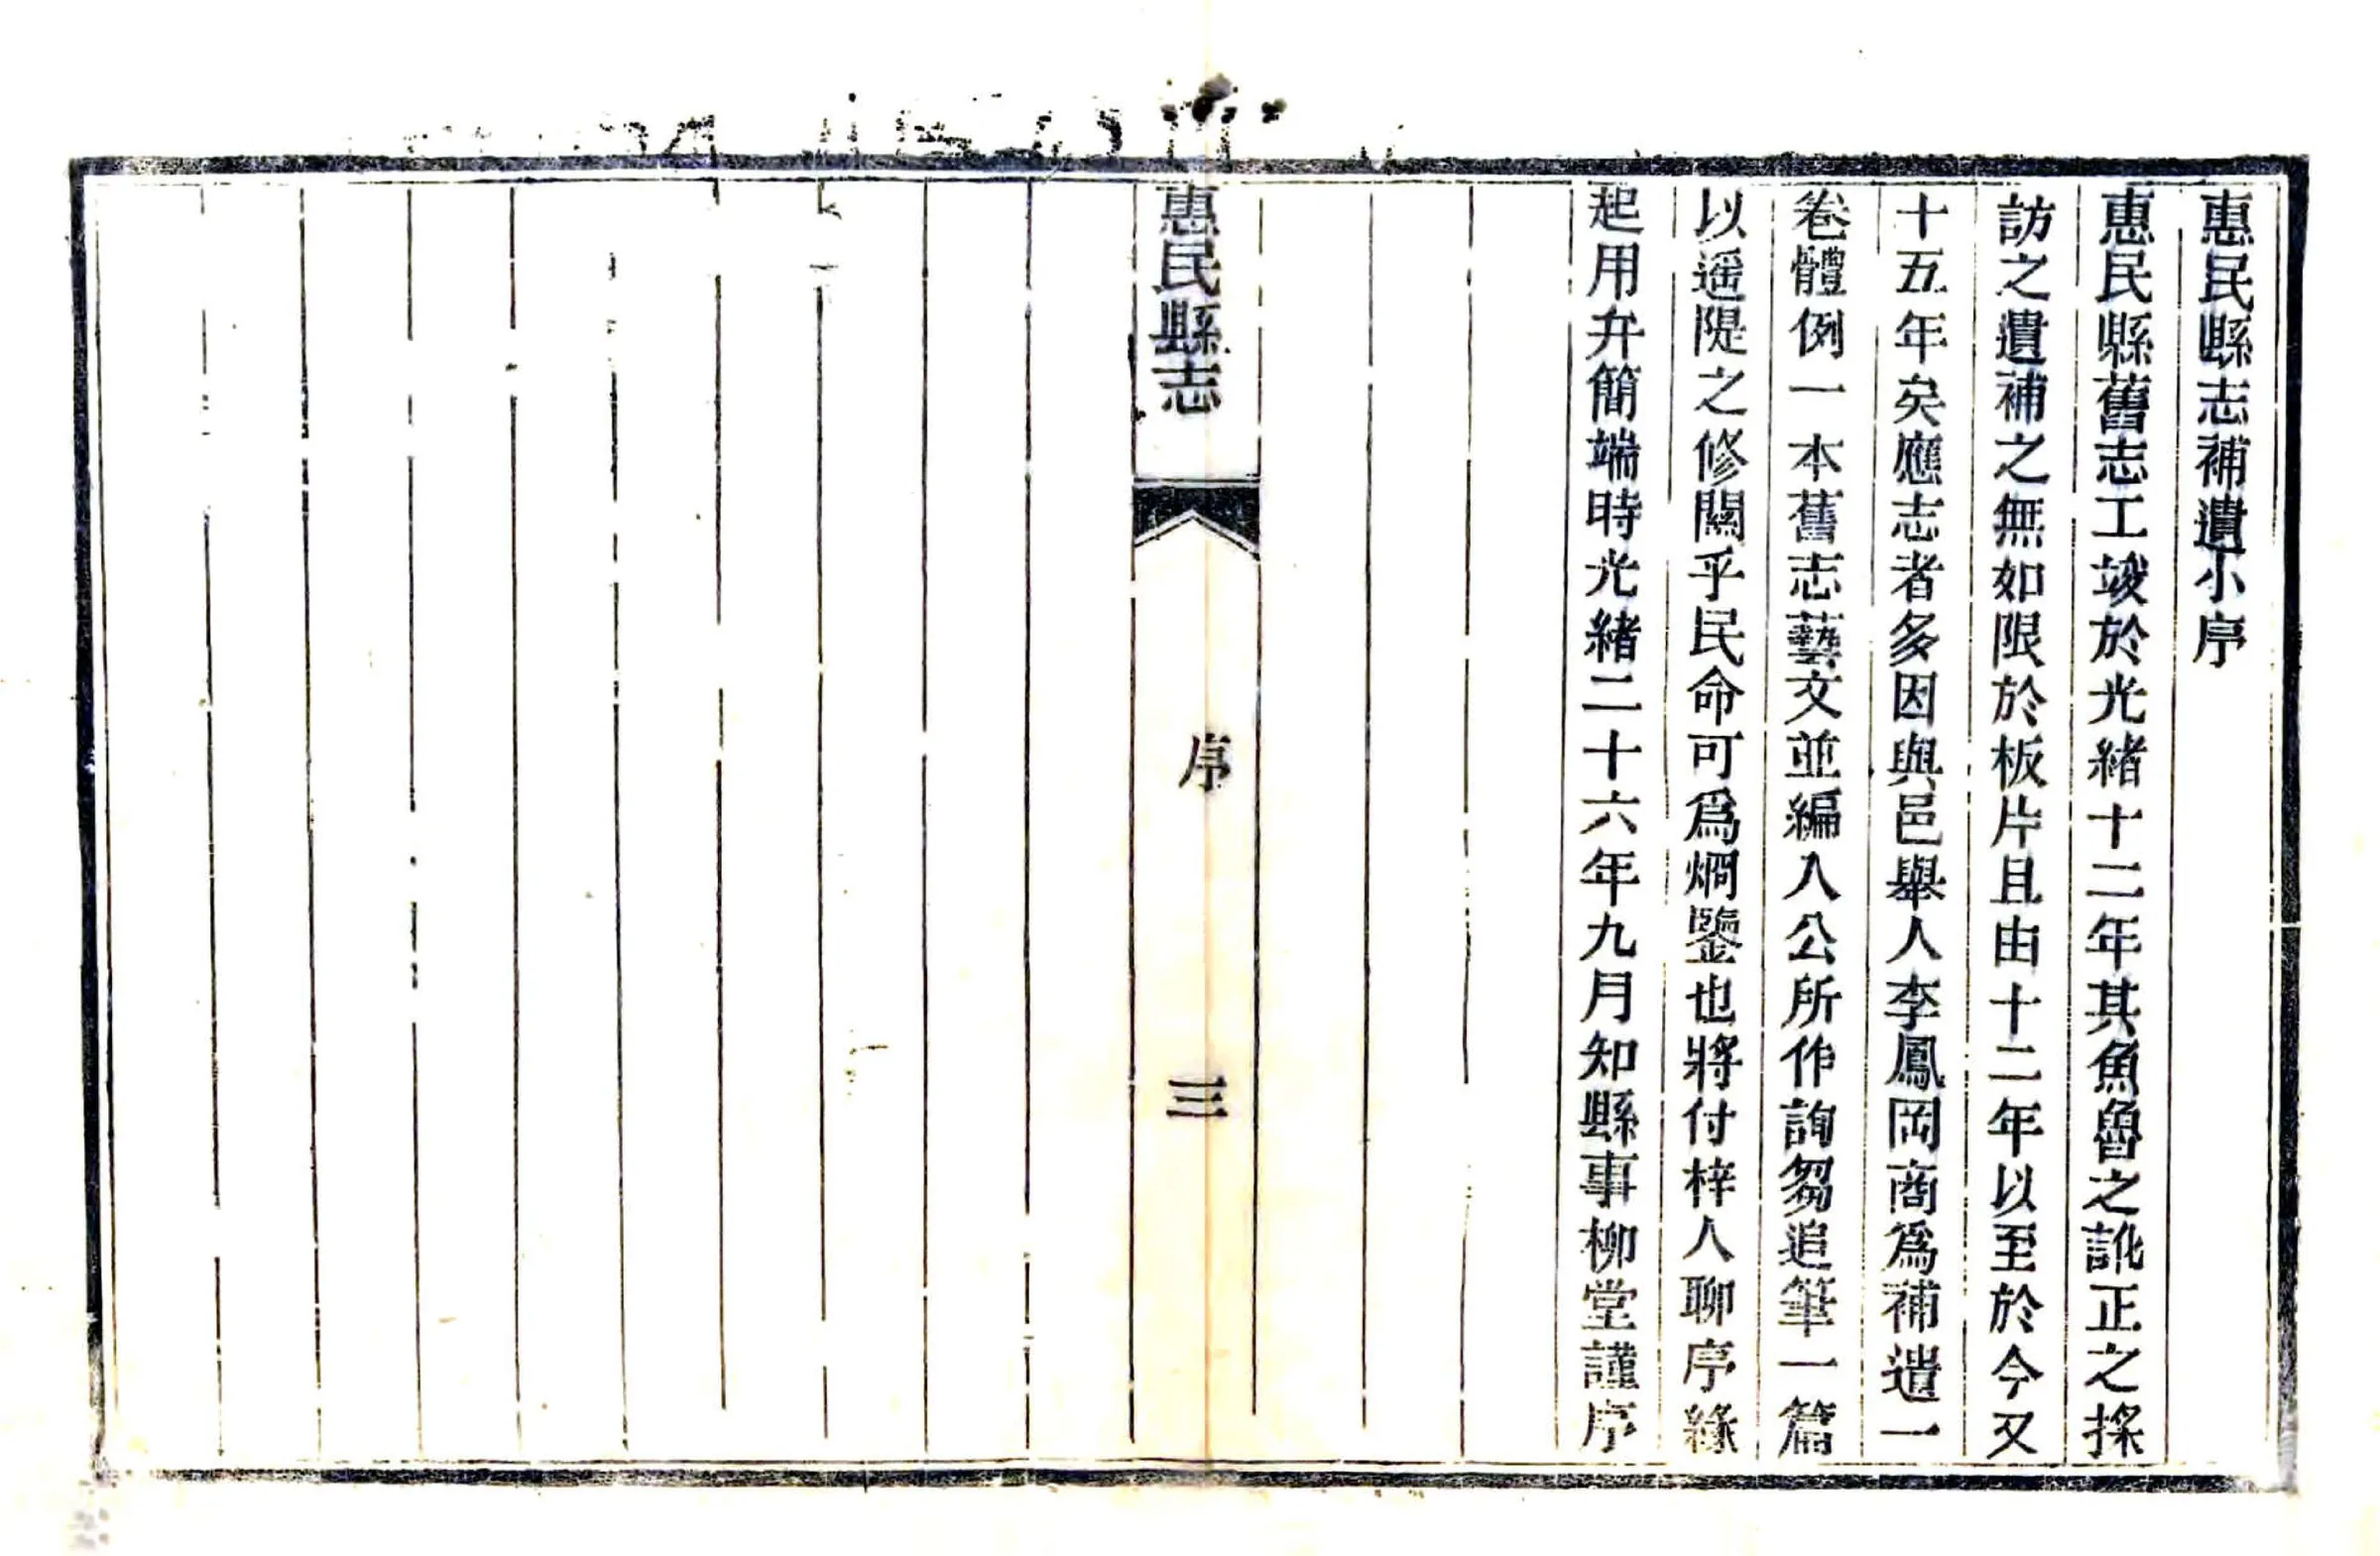 惠民縣志補遺小序
惠民縣舊志工竣於光緒十二年其魚魯之訛正之採
訪之遺補之無如限於板片且由十二年以至於今又
十五年矣應志者多因與邑舉人李鳳岡商為補遺一
卷體例一本舊志藝文並編入公所作詢芻追筆一篇
以遥隄之修關乎民命可為烱鑒也將付梓人聊序緣
起用弁簡端時光緒二十六年九月知縣事柳堂謹序
惠民縣志
序
三